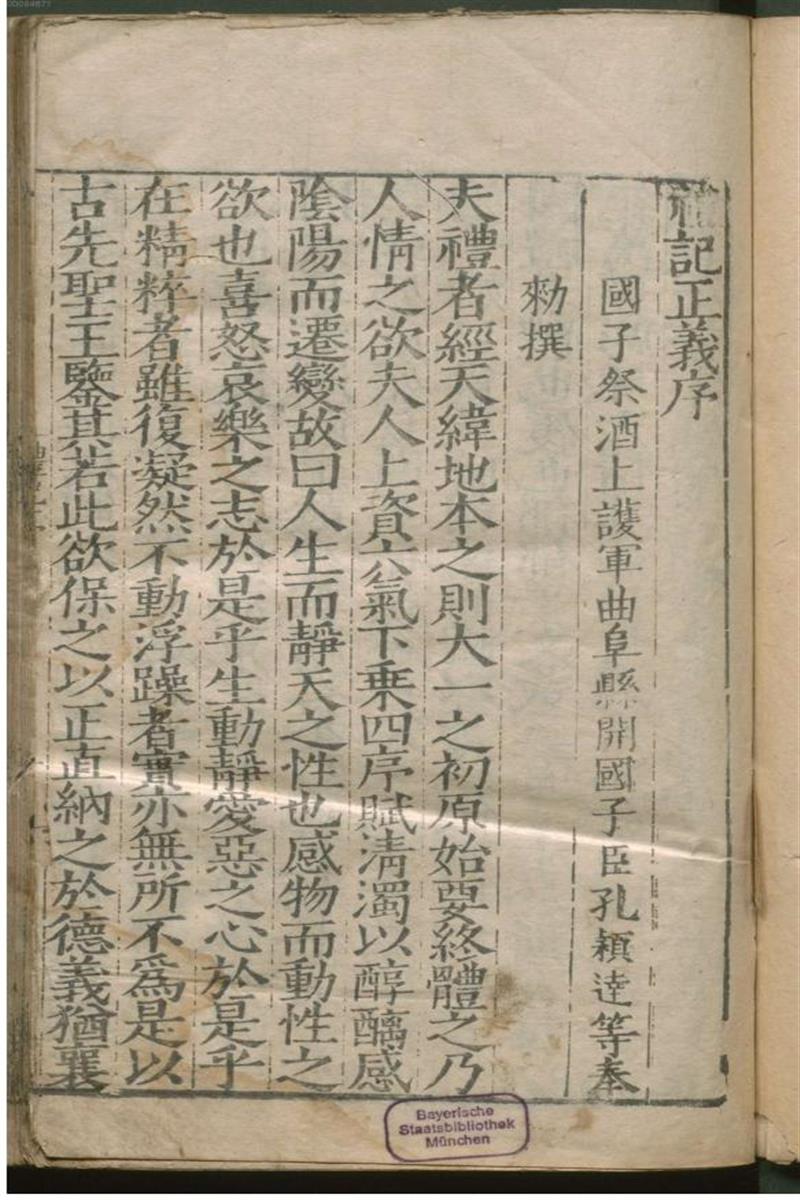 禮記正義序
國子祭酒上護軍曲阜縣開國子臣孔穎達等奉
勑撰
夫禮者經天緯地本之則大一之初原始要終體之乃
人情之欲夫人上資六氣下乗四序賦清濁以醇醨感
陰陽而遷變故曰人生而靜天之性也感物而動性之
欲也喜怒哀樂之志於是乎生動靜愛惡之心於是乎
在精粹者雖復凝然不動浮躁者實亦無所不爲是以
古先聖王鑒其若此欲保之以正直納之於德義猶襄
Bayerische
Staatsbibliothek
München